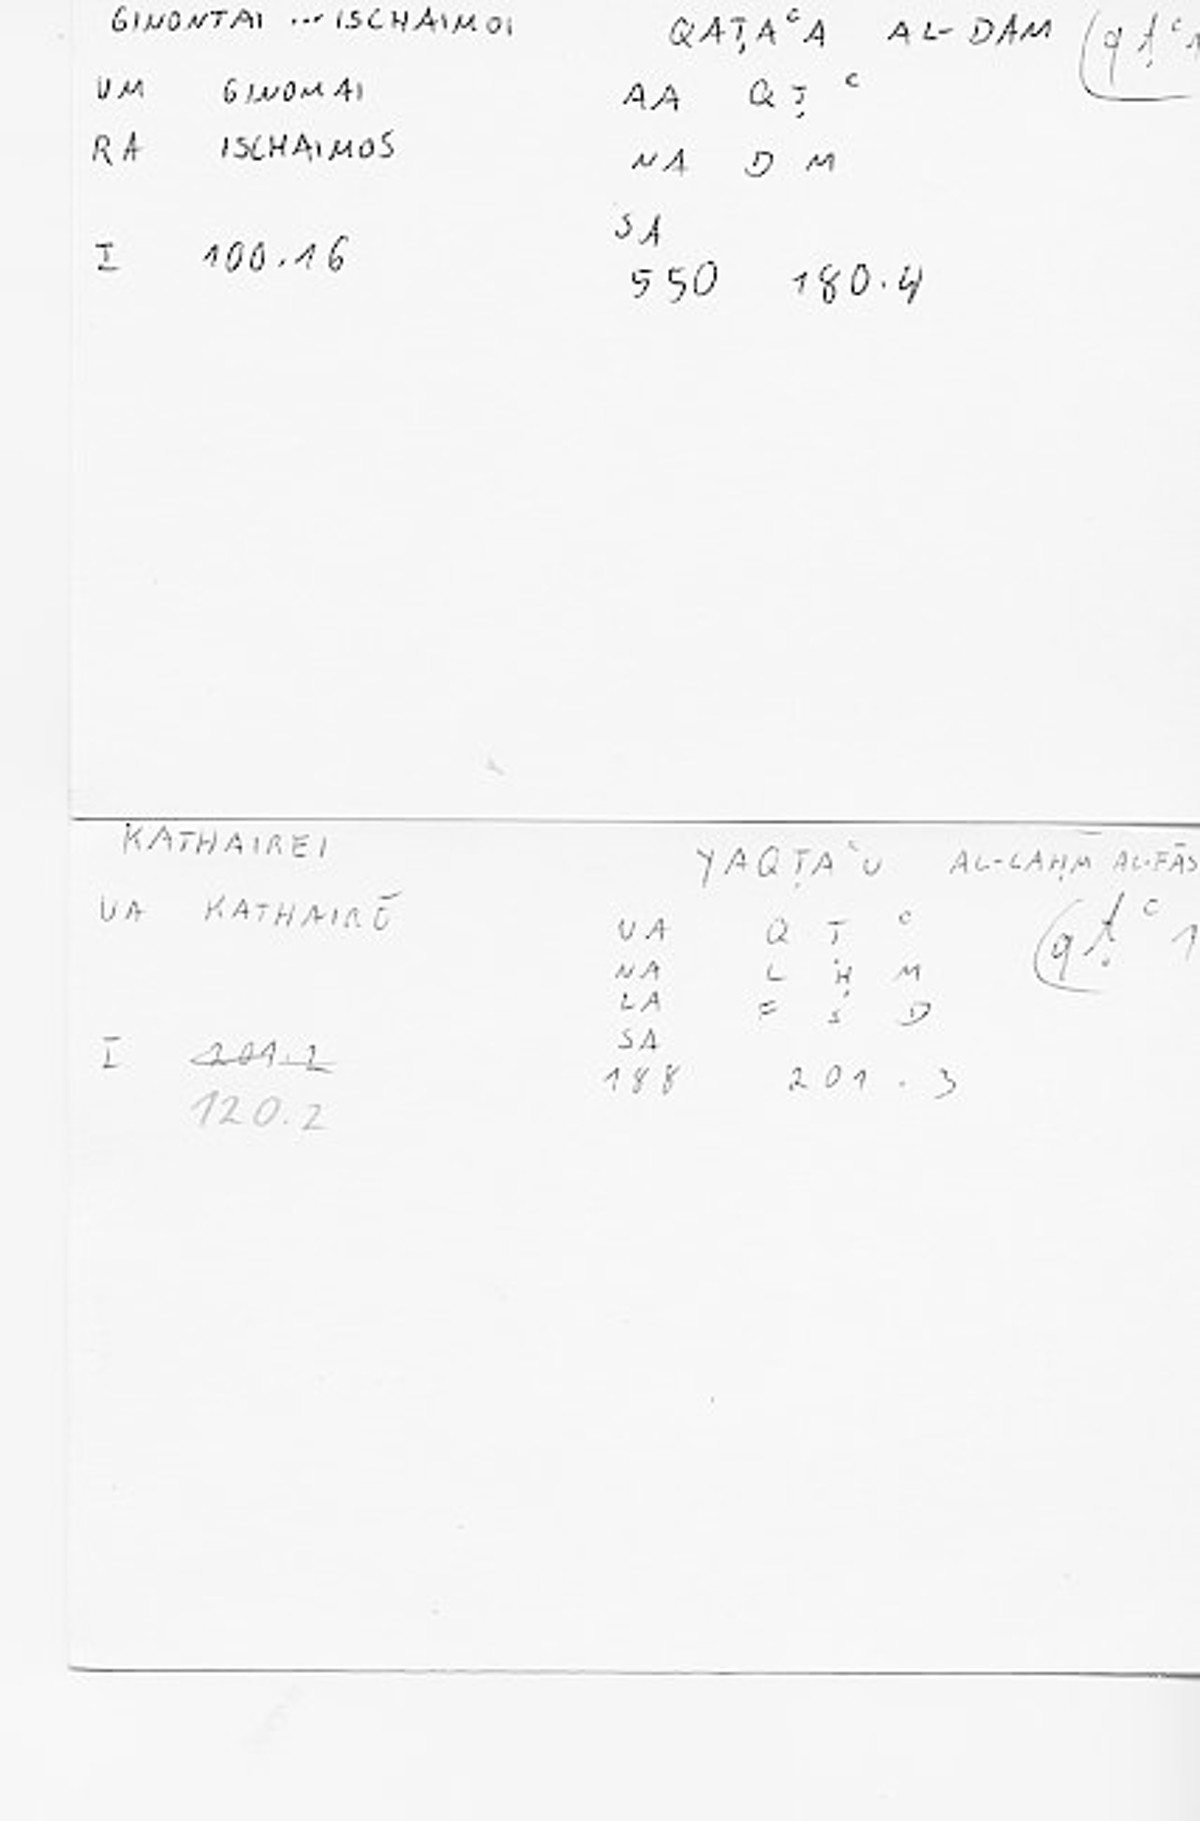 GINONTAI ... ISCHAIMOI QAṬAᶜA AL-DAM (qṭᶜ1
VM GINOMAI AA QṬᶜ
RA ISCHAIMOS NA D M
SA
I 100.16 550 180.4
KATHAIREI YAQṬAᶜU AL-LAḤM AL-FĀS
VA KATHAIRŌ VA Q Ṭ ᶜ (qṭᶜ 1
NA L Ḥ M
LA F S D
SA
I 201.2 188 201.3
120.2